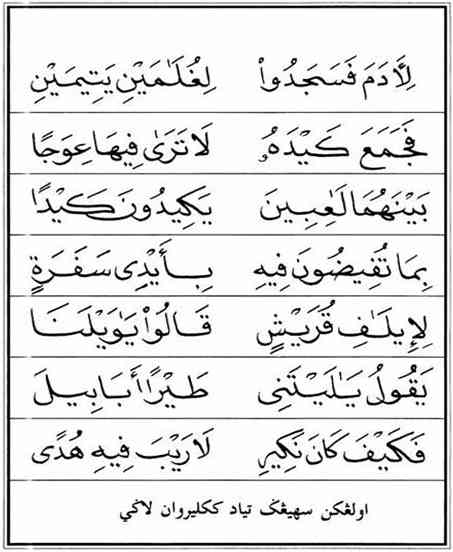 لِأَدَمَ فَسَجَدُواْ لِغُلَٰمَيْنِ يَتِيمَيْنِ
فَجَمَعَ كَيْدَهُۥ لَا تَرَىٰ فِيهَا عِوَجًا
بَيْنَهُمَا لَٰعِبِينَ يَكِيدُونَ كَيْدًا
بِمَا تُفِيضُونَ فِيهِ بِأَيْدِى سَفَرَةٍ
لِإِيلَٰفِ قُرَيْشٍ قَالُواْ يَٰوَيْلَنَا
يَقُولُ يَٰلَيْتَنِى طَيْرًا أَبَابِيلَ
فَكَيْفَ كَانَ نَكِيرِ لَا رَيْبَ فِيهِ هُدًى
اولڠكن سهيڠݢ تياد ككليروان لاݢي